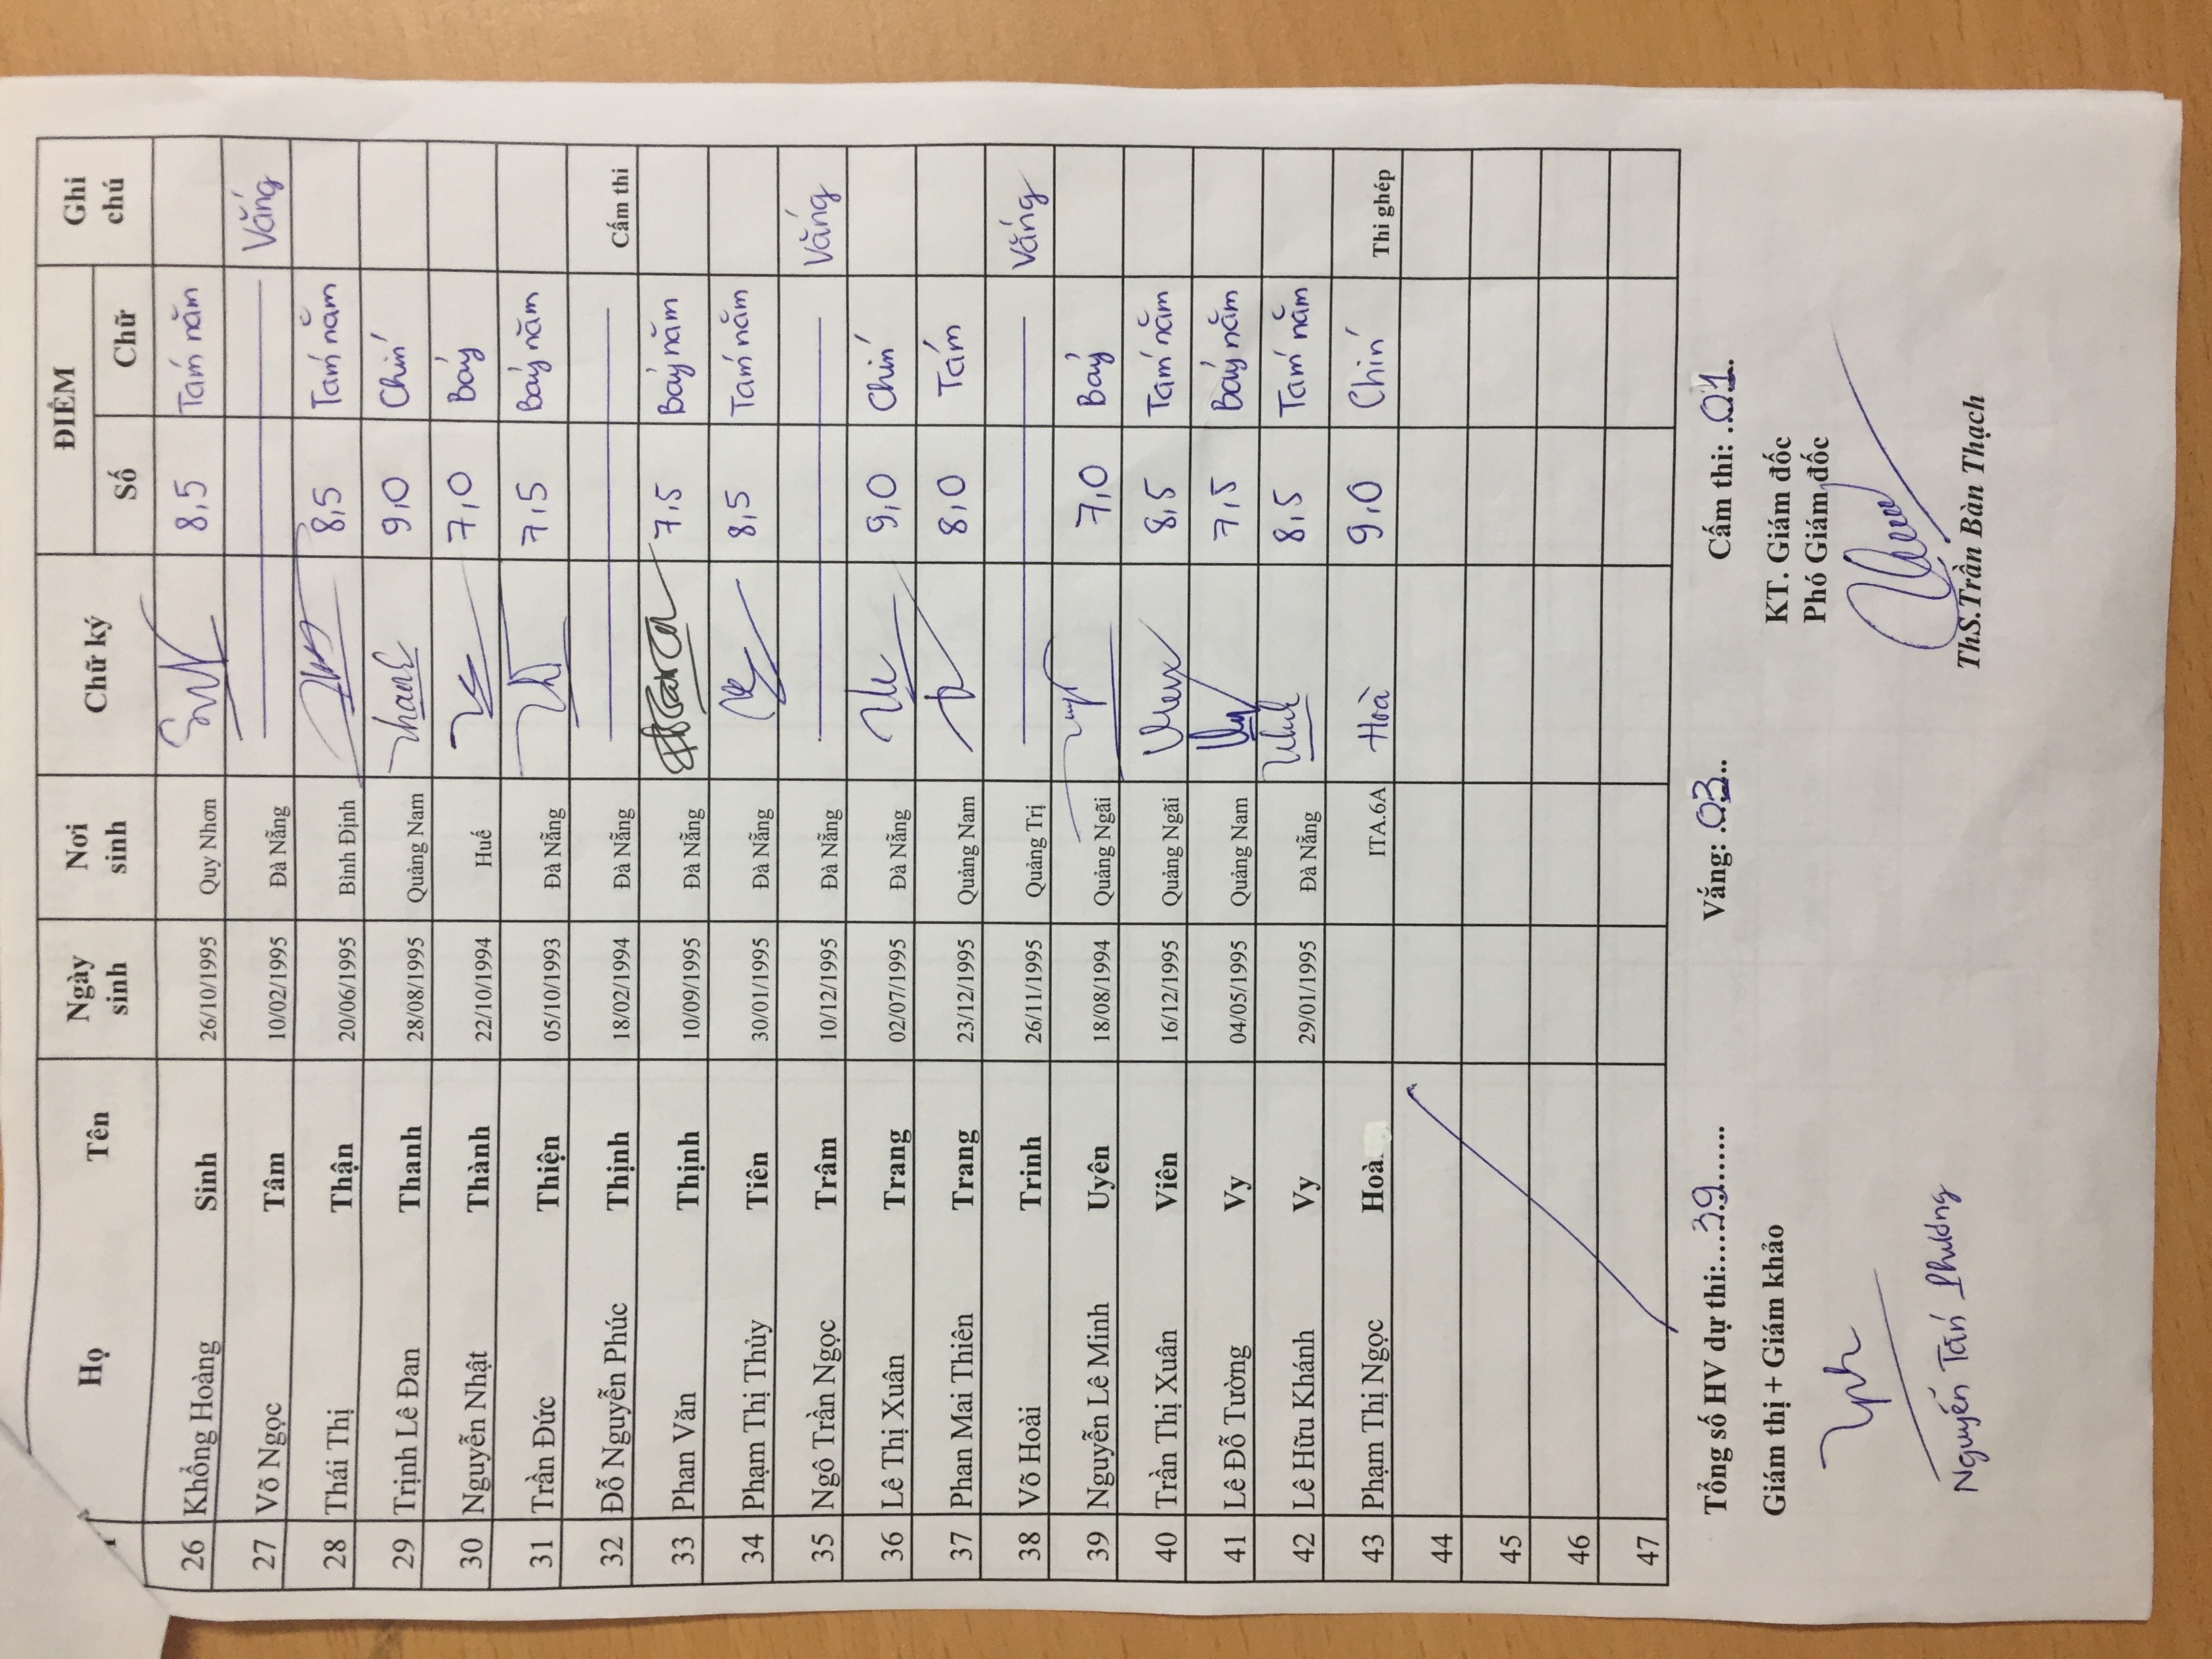 Họ Tên Ngày sinh Nơi sinh Chữ ký ĐIỂM Ghi chú
Số Chữ
26 Khổng Hoàng Sinh 26/10/1995 Quy Nhơn 8,5 Tám năm
27 Võ Ngọc Tâm 10/02/1995 Đà Nẵng Vắng
28 Thái Thị Thận 20/06/1995 Bình Định 8,5 Tám năm
29 Trịnh Lê Đan Thanh 28/08/1995 Quảng Nam Thanh 9,0 Chín
30 Nguyễn Nhật Thành 22/10/1994 Huế 7,0 Bảy
31 Trần Đức Thiện 05/10/1993 Đà Nẵng 7,5 Bảy năm
32 Đỗ Nguyễn Phúc Thịnh 18/02/1994 Đà Nẵng Cấm thi
33 Phan Văn Thịnh 10/09/1995 Đà Nẵng 7,5 Bảy năm
34 Phạm Thị Thủy Tiên 30/01/1995 Đà Nẵng 8,5 Tám năm
35 Ngô Trần Ngọc Trâm 10/12/1995 Đà Nẵng Vắng
36 Lê Thị Xuân Trang 02/07/1995 Đà Nẵng 9,0 Chín
37 Phan Mai Thiên Trang 23/12/1995 Quảng Nam 8,0 Tám
38 Võ Hoài Trinh 26/11/1995 Quảng Trị Vắng
39 Nguyễn Lê Minh Uyên 18/08/1994 Quảng Ngãi 7,0 Bảy
40 Trần Thị Xuân Viên 16/12/1995 Quảng Ngãi 8,5 Tám năm
41 Lê Đỗ Tường Vy 04/05/1995 Quảng Nam 7,5 Bảy năm
42 Lê Hữu Khánh Vy 29/01/1995 Đà Nẵng 8,5 Tám năm
43 Phạm Thị Ngọc Hoà ITA.6A Hoà 9,0 Chín Thi ghép
44
45
46
47
Tổng số HV dự thi:....39....... Vắng: .03... Cấm thi: .01..
Giám thị + Giám khảo KT. Giám đốc
Phó Giám đốc
Nguyễn Tấn Phương ThS.Trần Bàn Thạch